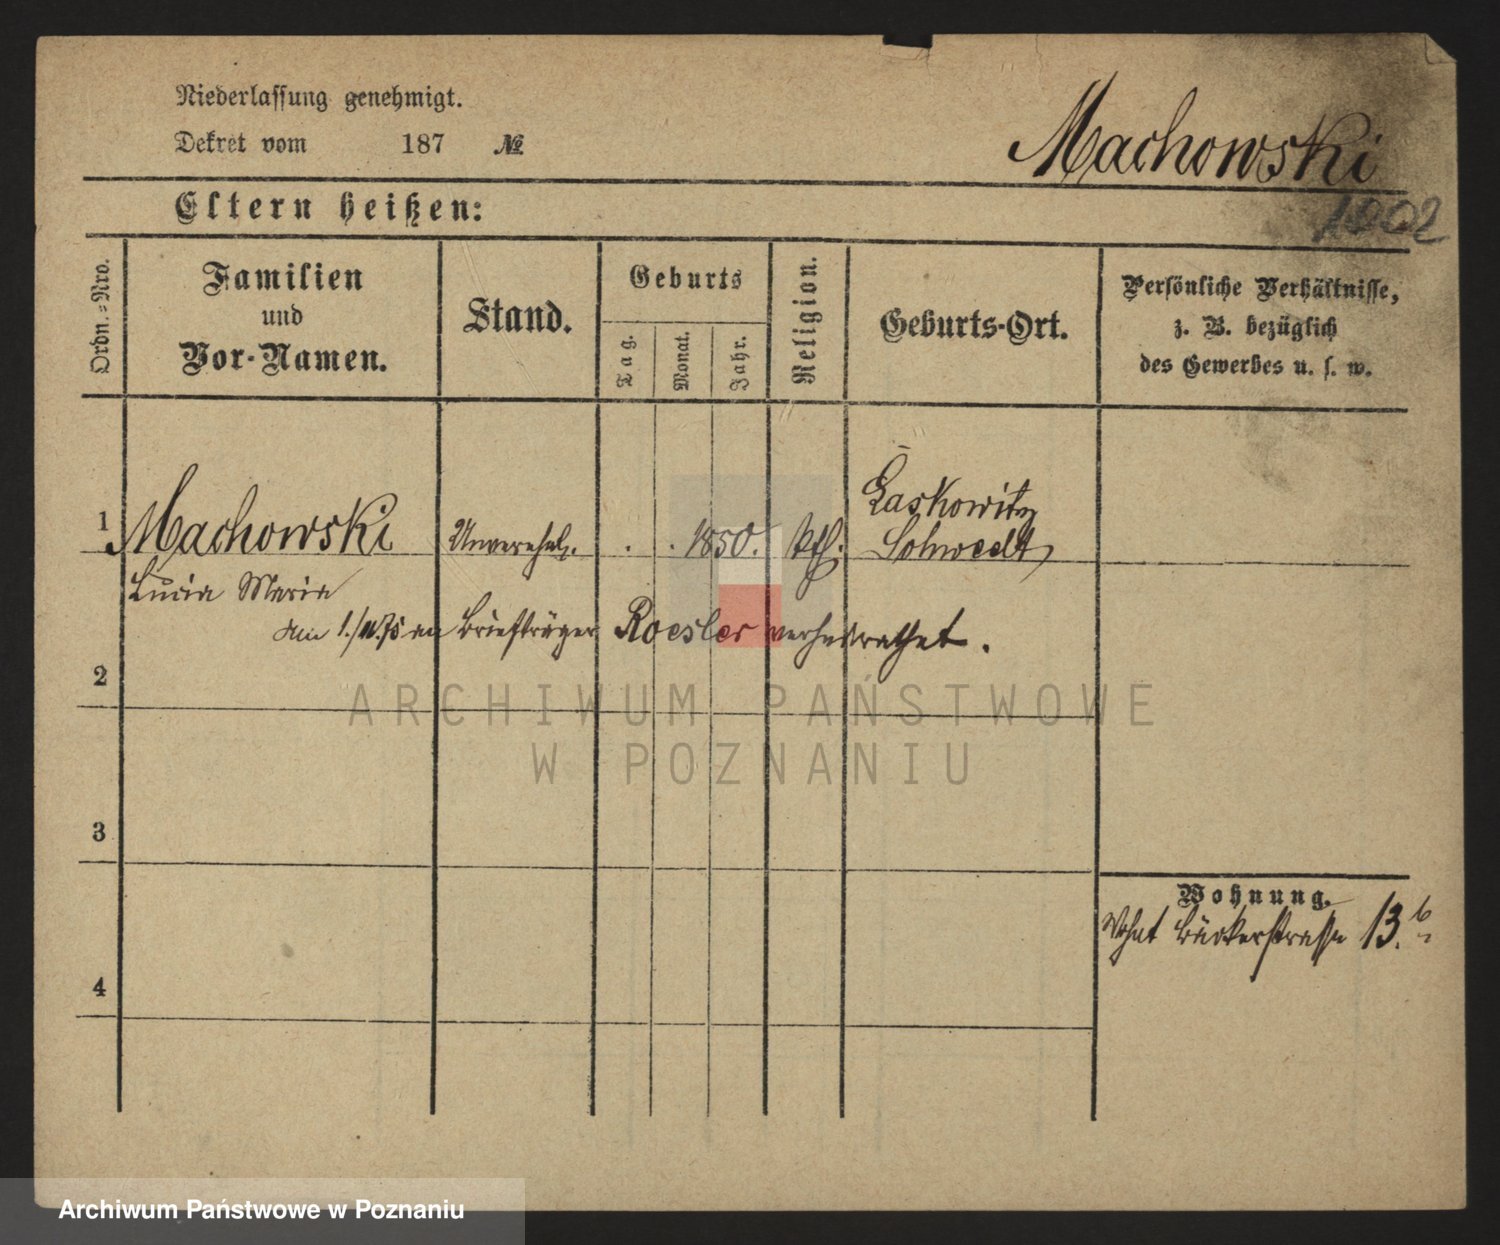 Niederlassung genehmigt.
Dekret vom 187 №
Machowski
1002
Eltern heißen:
Ordn.-Nro.
Familien
und
Vor-Namen.
Stand.
Geburts
Tag.
Monat.
Jahr.
Religion.
Geburts-Ort.
Persönliche Verhältnisse,
z. B. bezüglich
des Gewerbes u. s. w.
1 Machowski Unverehel. . . 1850. Kth. Laskowitz
Schwedt
Lucia Maria
am 1./11.75 an Briefträger Roesler verheirathet.
2
3
4
Wohnung.
Wohnt Bäckerstrasse 13.b
ARCHIWUM PAŃSTWOWE
W POZNANIU
Archiwum Państwowe w Poznaniu